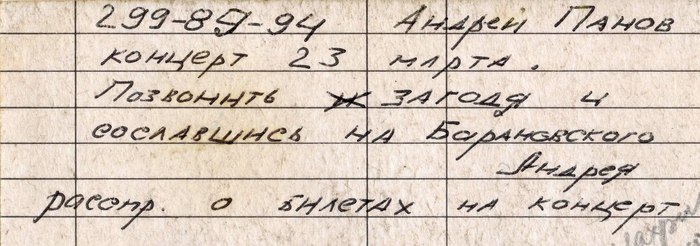 299-89-94 Андрей Панов
концерт 23 марта.
Позвонить загодя и
сославшись на Барановского
Андрея
распр. о билетах на концерт